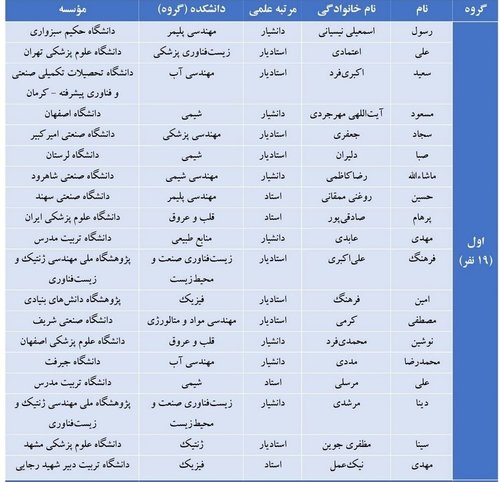 گروه نام نام خانوادگی مرتبه علمی دانشکده (گروه) مؤسسه
رسول اسمعیلی نیسیانی دانشیار مهندسی پلیمر دانشگاه حکیم سبزواری
علی اعتمادی استادیار زیست‌فناوری پزشکی دانشگاه علوم پزشکی تهران
سعید اکبری‌فرد استادیار مهندسی آب دانشگاه تحصیلات تکمیلی صنعتی
و فناوری پیشرفته – کرمان
مسعود آیت‌اللهی مهرجردی دانشیار شیمی دانشگاه اصفهان
سجاد جعفری استادیار مهندسی پزشکی دانشگاه صنعتی امیرکبیر
صبا دلیران استادیار شیمی دانشگاه لرستان
ماشاءالله رضاکاظمی دانشیار مهندسی شیمی دانشگاه صنعتی شاهرود
حسین روغنی ممقانی استاد مهندسی پلیمر دانشگاه صنعتی سهند
پرهام صادقی‌پور استاد قلب و عروق دانشگاه علوم پزشکی ایران
مهدی عابدی دانشیار منابع طبیعی دانشگاه تربیت مدرس
اول
(۱۹ نفر)
فرهنگ علی‌اکبری استادیار زیست‌فناوری صنعت و پژوهشگاه ملی مهندسی ژنتیک و
محیط‌زیست زیست‌فناوری
امین فرهنگ استادیار فیزیک پژوهشگاه دانش‌های بنیادی
مصطفی کرمی استادیار مهندسی مواد و متالورژی دانشگاه صنعتی شریف
نوشین محمدی‌فرد دانشیار قلب و عروق دانشگاه علوم پزشکی اصفهان
محمدرضا مددی دانشیار مهندسی آب دانشگاه جیرفت
علی مرسلی استاد شیمی دانشگاه تربیت مدرس
دینا مرشدی دانشیار زیست‌فناوری صنعت و پژوهشگاه ملی مهندسی ژنتیک و
محیط‌زیست زیست‌فناوری
سینا مظفری جوین استادیار ژنتیک دانشگاه علوم پزشکی مشهد
مهدی نیک‌عمل استاد فیزیک دانشگاه تربیت دبیر شهید رجایی